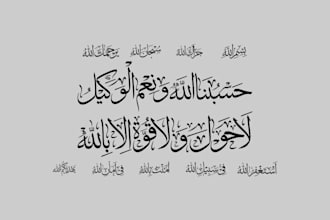 بسم الله جزاك الله سبحان الله يرحمك الله
حسبنا الله ونعم الوكيل
لا حول ولا قوة إلا بالله
أستغفر الله في سبيل الله لعنة الله في أمان الله